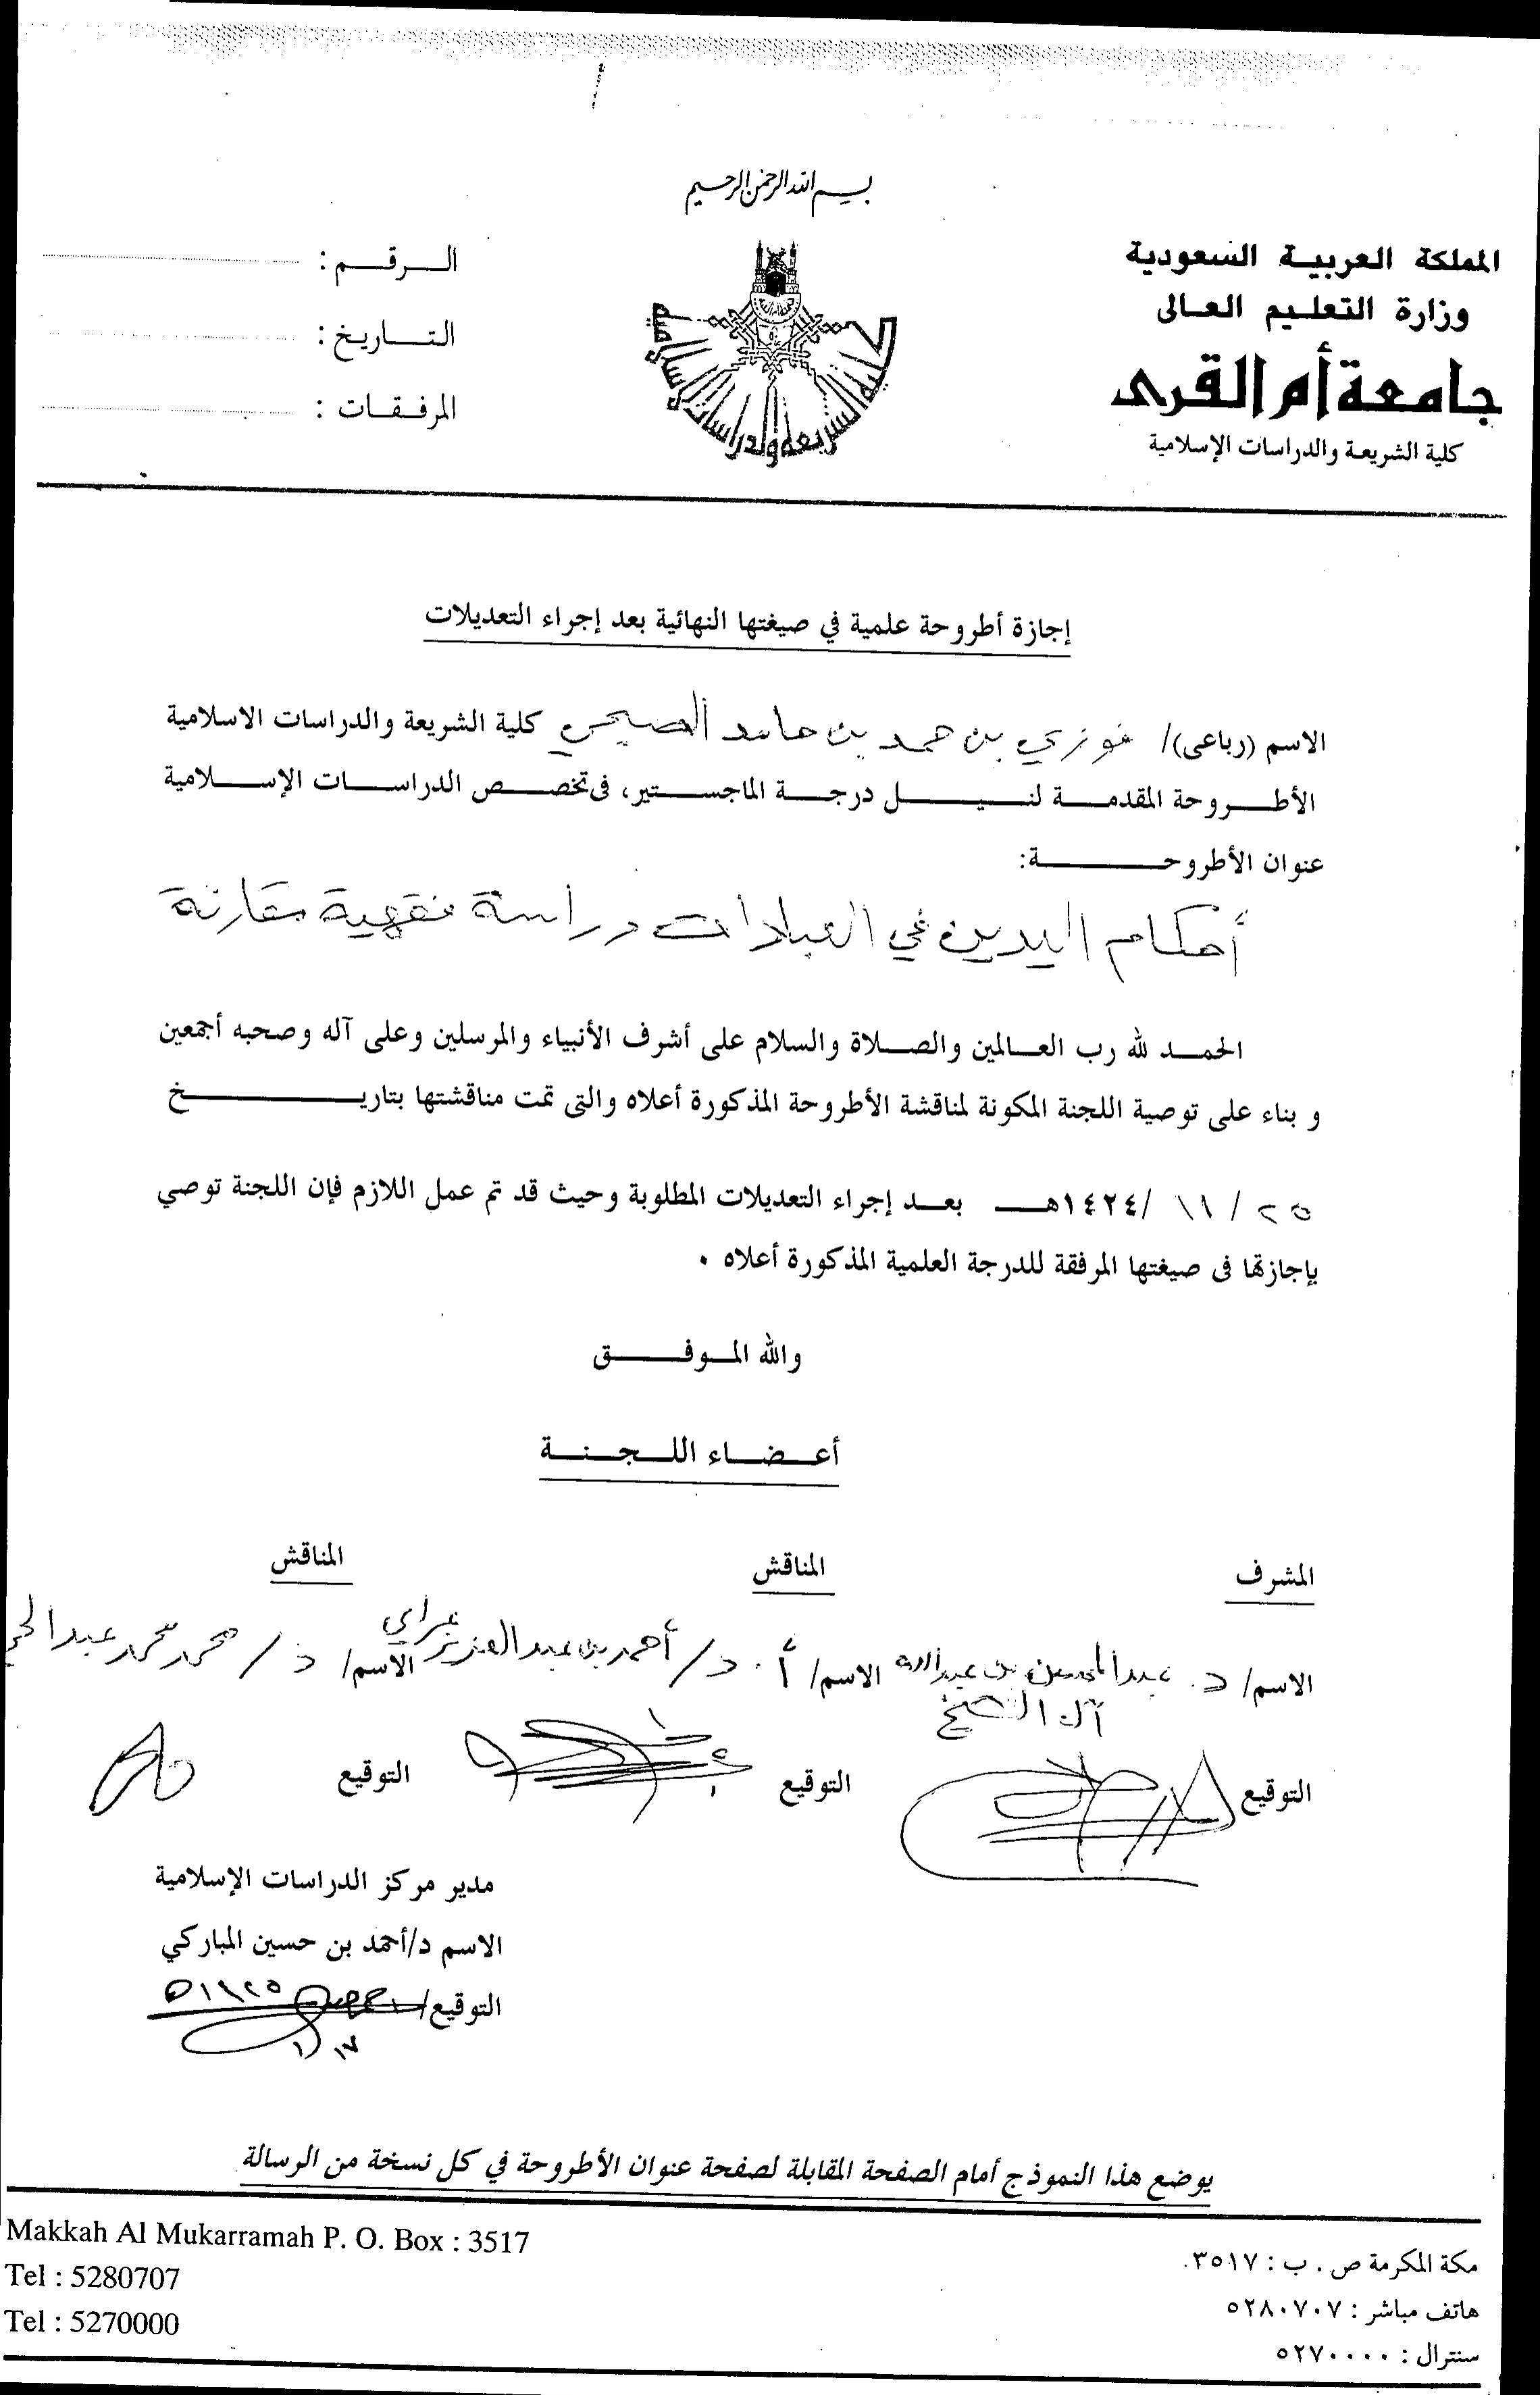 بسم الله الرحمن الرحيم
المملكة العربية السعودية
وزارة التعليم العالى
جامعة أم القرى
كلية الشريعة والدراسات الإسلامية
الرقم :
التاريخ :
المرفقات :
كلية الشريعة والدراسات الإسلامية
إجازة أطروحة علمية في صيغتها النهائية بعد إجراء التعديلات
الاسم (رباعى)/ فوزي بن حمد بن حامد الصبحي كلية الشريعة والدراسات الاسلامية
الأطروحة المقدمة لنيل درجة الماجستير، فى تخصص الدراسات الإسلامية
عنوان الأطروحة:
أحكام اليدين في العبادات دراسة فقهية مقارنة
الحمد لله رب العالمين والصلاة والسلام على أشرف الأنبياء والمرسلين وعلى آله وصحبه أجمعين
و بناء على توصية اللجنة المكونة لمناقشة الأطروحة المذكورة أعلاه والتى تمت مناقشتها بتاريخ
٢٥ / ١١ /١٤٢٤هـ بعد إجراء التعديلات المطلوبة وحيث قد تم عمل اللازم فإن اللجنة توصي
بإجازتها فى صيغتها المرفقة للدرجة العلمية المذكورة أعلاه .
والله الموفق
أعضاء اللجنة
المشرف المناقش المناقش
الاسم/ د. عبدالمحسن بن عبدالله الاسم/ أ. د/ أحمد بن عبدالعزيز عرابي الاسم/ د / محمد محمد عبدالحي
آل الشيخ
التوقيع التوقيع التوقيع
مدير مركز الدراسات الإسلامية
الاسم د/أحمد بن حسين المباركي
التوقيع/ ١٤٢٥هـ
١٧ / ١
يوضع هذا النموذج أمام الصفحة المقابلة لصفحة عنوان الأطروحة في كل نسخة من الرسالة
Makkah Al Mukarramah P. O. Box : 3517
Tel : 5280707
Tel : 5270000
مكة المكرمة ص . ب : ٣٥١٧
هاتف مباشر : ٥٢٨٠٧٠٧
سنترال : ٥٢٧٠٠٠٠